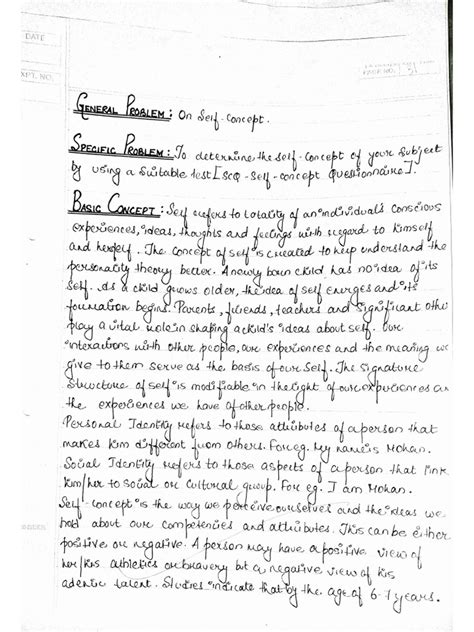 DATE
EXPT. NO.
PAGE NO.
GENERAL PROBLEM : On Self-Concept.
SPECIFIC PROBLEM : To determine the self-concept of your subject
by using a suitable test [SCQ-Self-concept Questionnaire].
BASIC CONCEPT : Self refers to totality of an individual's conscious
experiences, ideas, thoughts and feelings with regard to himself
and herself. The concept of self is created to help understand the
personality theory better. A newly born child has no idea of its
self. As a child grows older, the idea of self emerges and its
foundation begins. Parents, friends, teachers and significant othe
play a vital role in shaping a child's ideas about self. Our
interactions with other people, our experiences and the meaning we
give to them serve as the basis of our self. The signature
structure of self is modifiable in the light of our experiences an
the experiences we have of other people.
Personal Identity refers to those attributes of a person that
makes him different from others. For eg. My name is Mohan.
Social Identity refers to those aspects of a person that link
him/her to social or cultural group. For eg. I am Mohan.
Self-concept is the way we perceive ourselves and the ideas we
hold about our competencies and attributes. This can be either
positive or negative. A person may have a positive view of
her/his athletics or bravery but a negative view of his
ademic talent. Studies indicate that by the age of 6-7 years.